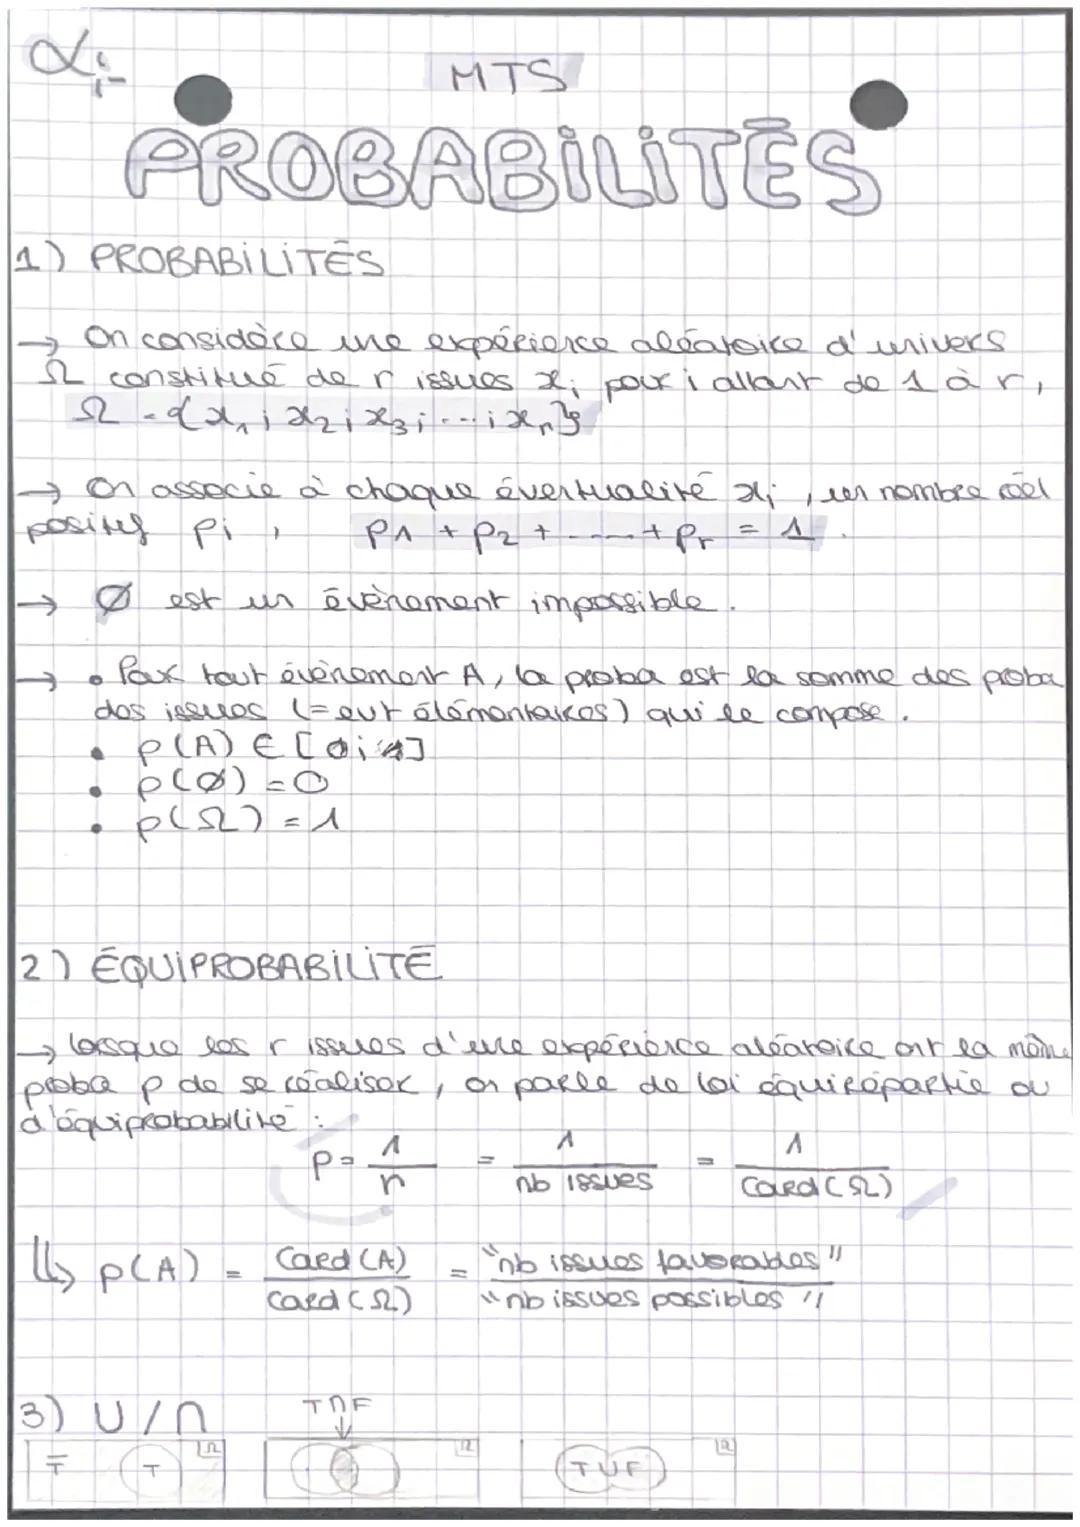 αi
MTS
PROBABILITÉS
1) PROBABILITÉS
→ On considère une expérience aléatoire d'univers
Ω constitué de r issues xi pour i allant de 1 à r,
Ω = {x1 ; x2 ; x3 ; ... ; xr}
→ On associe à chaque éventualité xi, un nombre réel
positif pi, p1 + p2 + ..... + pr = 1.
→ Ø est un évènement impossible.
→ • Pour tout évènement A, la proba est la somme des proba
des issues (= evt élémentaires) qui le compose.
• p(A) ∈ [0 ; 1]
• p(Ø) = 0
• p(Ω) = 1
2) ÉQUIPROBABILITÉ
→ Lorsque les r issues d'une expérience aléatoire ont la même
proba p de se réaliser, on parle de loi équirépartie ou
d'équiprobabilité :
p = 1/r = 1/nb issues = 1/Card(Ω)
↳ p(A) = Card(A)/Card(Ω) = "nb issues favorables"/"nb issues possibles"
3) U / ∩
T∩F
T̅ T Ω Ω TUF Ω